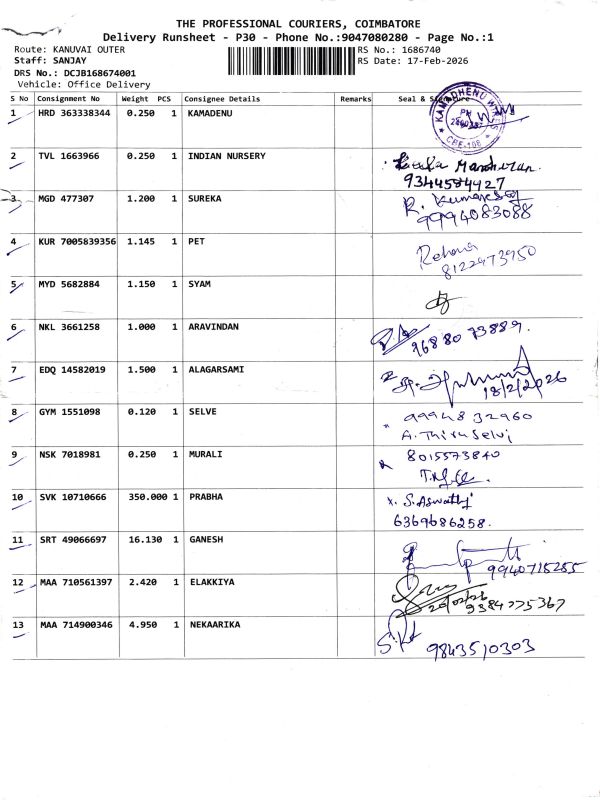 THE PROFESSIONAL COURIERS, COIMBATORE
Delivery Runsheet - P30 - Phone No.:9047080280 - Page No.:1
Route: KANUVAI OUTER
RS No.: 1686740
Staff: SANJAY
RS Date: 17-Feb-2026
DRS No.: DCJB168674001
Vehicle: Office Delivery
S No Consignment No Weight PCS Consignee Details Remarks Seal & Signature
1 HRD 363338344 0.250 1 KAMADENU KAMADHENU
CBE-108
2 TVL 1663966 0.250 1 INDIAN NURSERY Manoharan
9344584427
3 MGD 477307 1.200 1 SUREKA R.
9994083088
4 KUR 7005839356 1.145 1 PET Rehana
8122973950
5 MYD 5682884 1.150 1 SYAM
6 NKL 3661258 1.000 1 ARAVINDAN 96880 73889.
7 EDQ 14582019 1.500 1 ALAGARSAMI
18/2/2026
8 GYM 1551098 0.120 1 SELVE 99948 32960
A. Thiru Selvi
9 NSK 7018981 0.250 1 MURALI 8015573840
10 SVK 10710666 350.000 1 PRABHA x. S. Aswathy
6369686258.
11 SRT 49066697 16.130 1 GANESH 9940715255
12 MAA 710561397 2.420 1 ELAKKIYA
9384775367
13 MAA 714900346 4.950 1 NEKAARIKA
9843510303